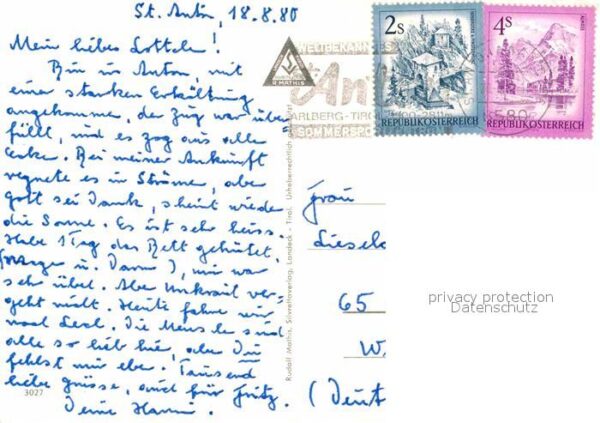 St. Anton, 18.8.80
Mein liebes Lottele!
Bin in Anton, mit
einer starken Erkältung
angekommen, der Zug war über
füllt, und es zog aus alle
Ecke. Bei meiner Ankunft
regnete es in Ströme, aber
gott sei Dank, scheint wieder
die Sonne. Es ist sehr heiss.
Habe 1 Tag das Bett gehütet,
(Magen u. Darm), mir war
sehr übel. Aber Unkraut ver-
geht nicht. Heute fahre wir
nach Lech. Die Mens le sind
alle so lieb hie, aber Du
fehlst mir ebe. Tausend
liebe grüsse, auch für Fritz.
Deine Hanni.
3027
Rudolf Mathis, Silvrettaverlag, Landeck - Tirol. Urheberrechtlich
R·MATHIS
WELTBEKANNTES
St. Ant
ARLBERG-TIROL
SOMMERSPO
2s
REPUBLIK ÖSTERREICH
4s
REPUBLIK ÖSTERREICH
6580
Frau
Liesel
65
W
(Deut
privacy protection
Datenschutz